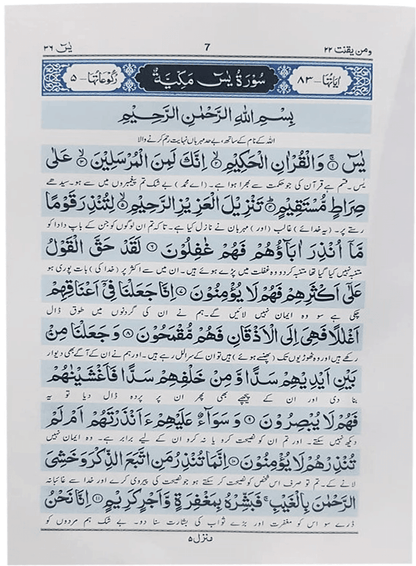 يٰسٓ ٣٦
7
ومن يقنت ٢٢
اٰيَاتُهَا — ٨٣
سُوْرَةُ يٰسٓ مَكِّيَّةٌ
رُكُوْعَاتُهَا — ٥
بِسْمِ اللّٰهِ الرَّحْمٰنِ الرَّحِيْمِ
اللہ کے نام کے ساتھ، بے حد مہربان نہایت رحم کرنے والا
يٰسٓ ۚ وَالْقُرْاٰنِ الْحَكِيْمِ ۙ اِنَّكَ لَمِنَ الْمُرْسَلِيْنَ ۙ عَلٰى
یس۔ قسم ہے قرآن کی جو حکمت سے بھرا ہوا ہے۔ (اے محمدؐ) بے شک تم پیغمبروں میں سے ہو۔ سیدھے
صِرَاطٍ مُّسْتَقِيْمٍ ؕ تَنْزِيْلَ الْعَزِيْزِ الرَّحِيْمِ ۙ لِتُنْذِرَ قَوْمًا
رستے پر۔ (یہ خدائے) غالب (اور) مہربان نے نازل کیا ہے۔ تاکہ تم ان لوگوں کو جن کے باپ دادا کو
مَّاۤ اُنْذِرَ اٰبَآؤُهُمْ فَهُمْ غٰفِلُوْنَ ۞ لَقَدْ حَقَّ الْقَوْلُ
متنبہ نہیں کیا گیا تھا متنبہ کردو وہ غفلت میں پڑے ہوئے ہیں۔ ان میں سے اکثر پر (خدا کی) بات پوری ہو
عَلٰۤى اَكْثَرِهِمْ فَهُمْ لَا يُؤْمِنُوْنَ ۞ اِنَّا جَعَلْنَا فِيْۤ اَعْنَاقِهِمْ
چکی ہے سو وہ ایمان نہیں لائیں گے۔ ہم نے ان کی گردنوں میں طوق ڈال
اَغْلٰلًا فَهِيَ اِلَى الْاَذْقَانِ فَهُمْ مُّقْمَحُوْنَ ۞ وَجَعَلْنَا مِنْۢ
رکھے ہیں اور وہ ٹھوڑیوں تک (پھنسے ہوئے) ہیں تو ان کے سر الل رہے ہیں۔ اور ہم نے ان کے آگے بھی دیوار
بَيْنِ اَيْدِيْهِمْ سَدًّا وَّمِنْ خَلْفِهِمْ سَدًّا فَاَغْشَيْنٰهُمْ
بنا دی اور ان کے پیچھے بھی پھر ان پر پردہ ڈال دیا تو یہ
فَهُمْ لَا يُبْصِرُوْنَ ۞ وَسَوَآءٌ عَلَيْهِمْ ءَاَنْذَرْتَهُمْ اَمْ لَمْ
دیکھ نہیں سکتے۔ اور تم ان کو نصیحت کرو یا نہ کرو ان کے لیے برابر ہے۔ وہ ایمان نہیں
تُنْذِرْهُمْ لَا يُؤْمِنُوْنَ ۞ اِنَّمَا تُنْذِرُ مَنِ اتَّبَعَ الذِّكْرَ وَخَشِيَ
لانے کے۔ تم تو صرف اس شخص کو نصیحت کر سکتے ہو جو نصیحت کی پیروی کرے اور خدا سے غائبانہ
الرَّحْمٰنَ بِالْغَيْبِ ۚ فَبَشِّرْهُ بِمَغْفِرَةٍ وَّاَجْرٍ كَرِيْمٍ ۞ اِنَّا نَحْنُ
ڈرے سو اس کو مغفرت اور بڑے ثواب کی بشارت سنا دو۔ بے شک ہم مردوں کو
منزل ٥